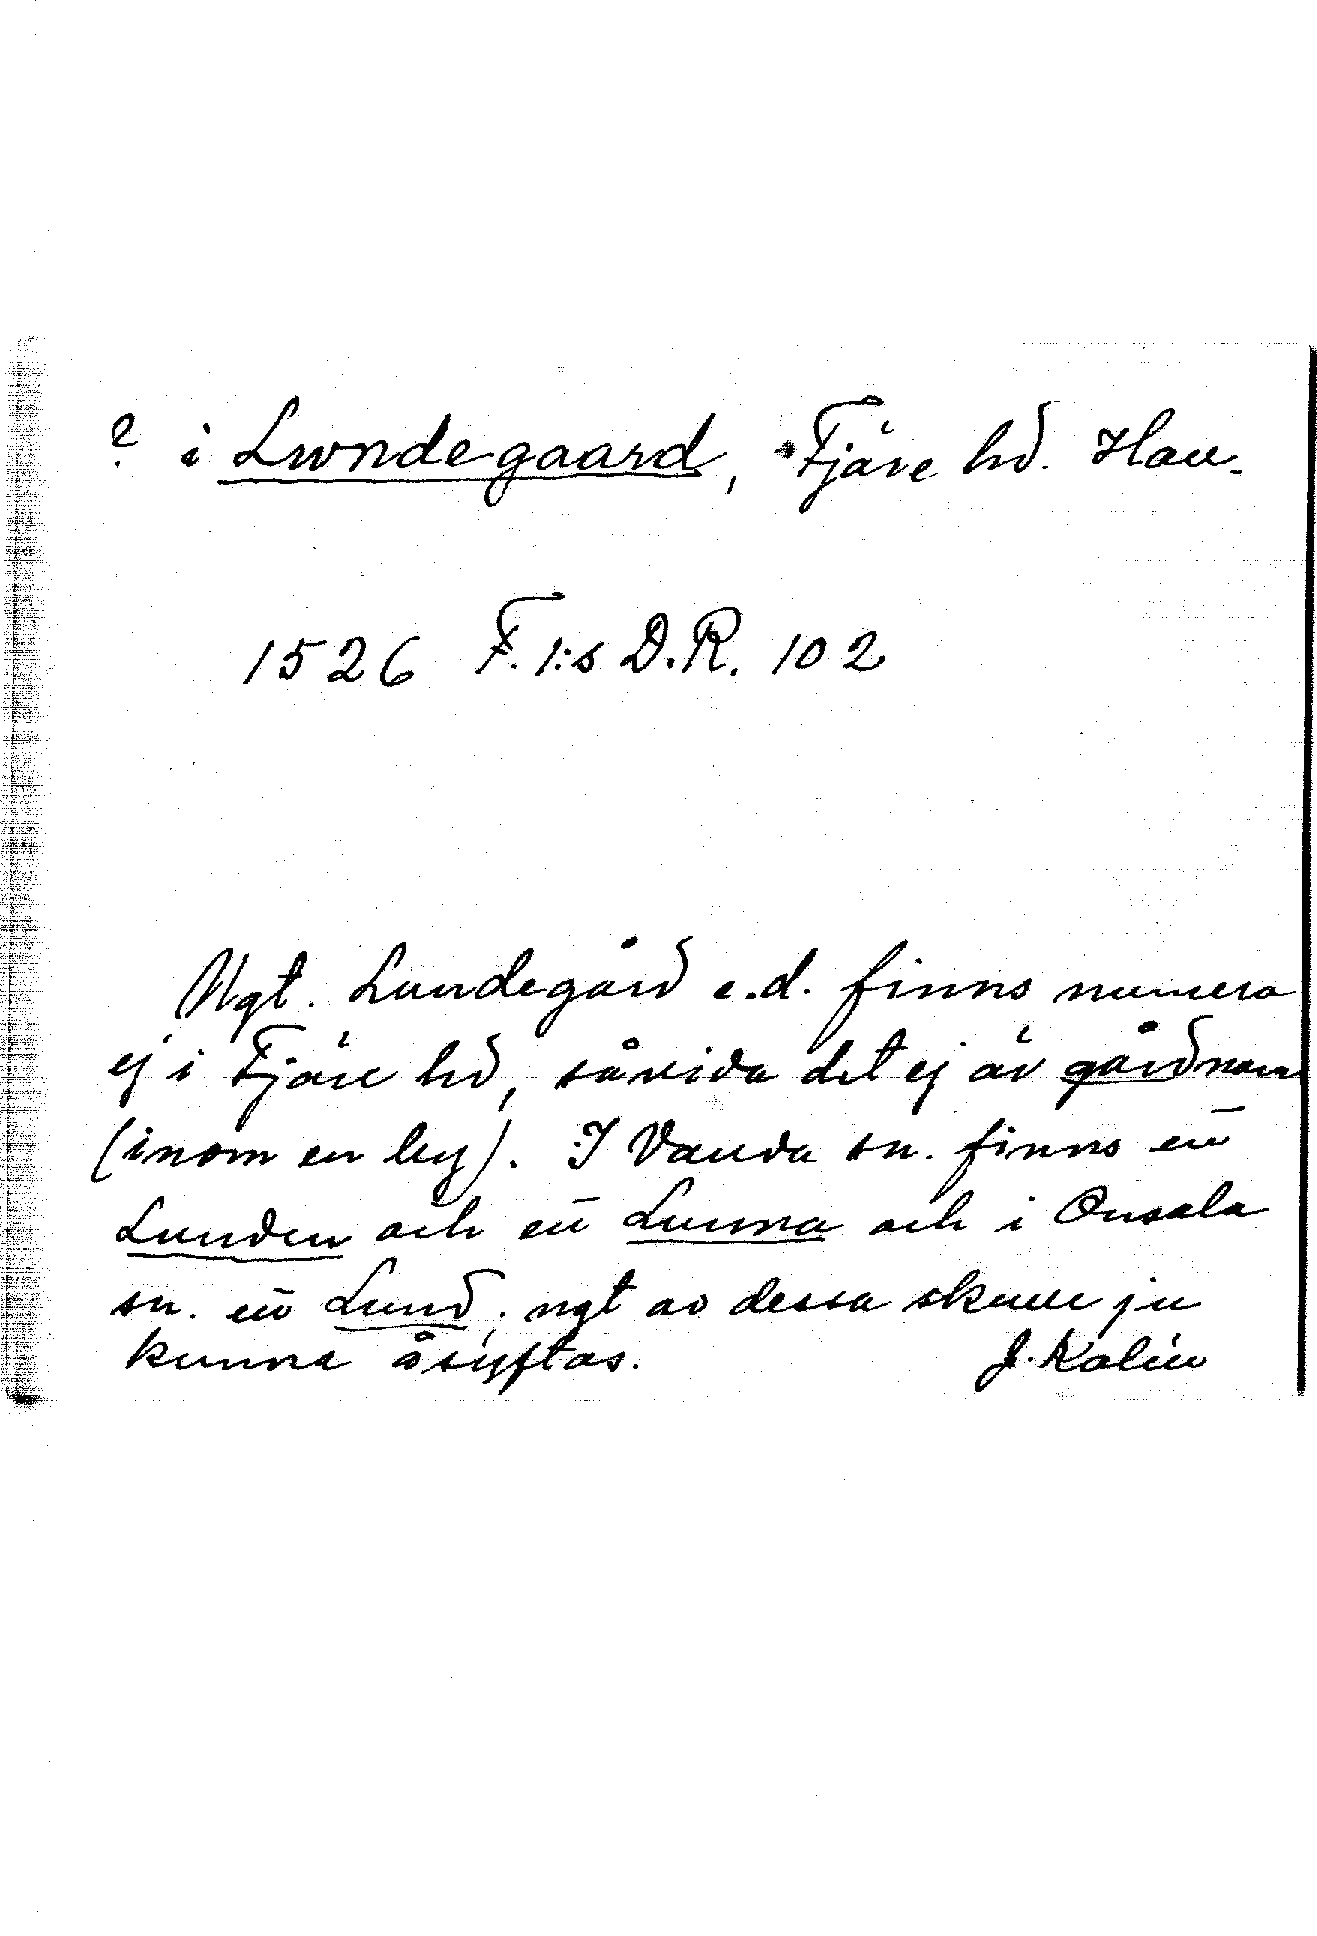 ? i Lwndegaard, Fjäre hd. Hall.
1526 F. 1:s D.R. 102
Ngt. Lundegård e.d. finns numera
ej i Fjäre hd, såvida det ej är gårdnamn
(inom en by). I Vanda sn. finns ett
Lunden och ett Lunna och i Onsala
sn. ett Lund; ngt av dessa skulle ju
kunna åsyftas. J. Kalén